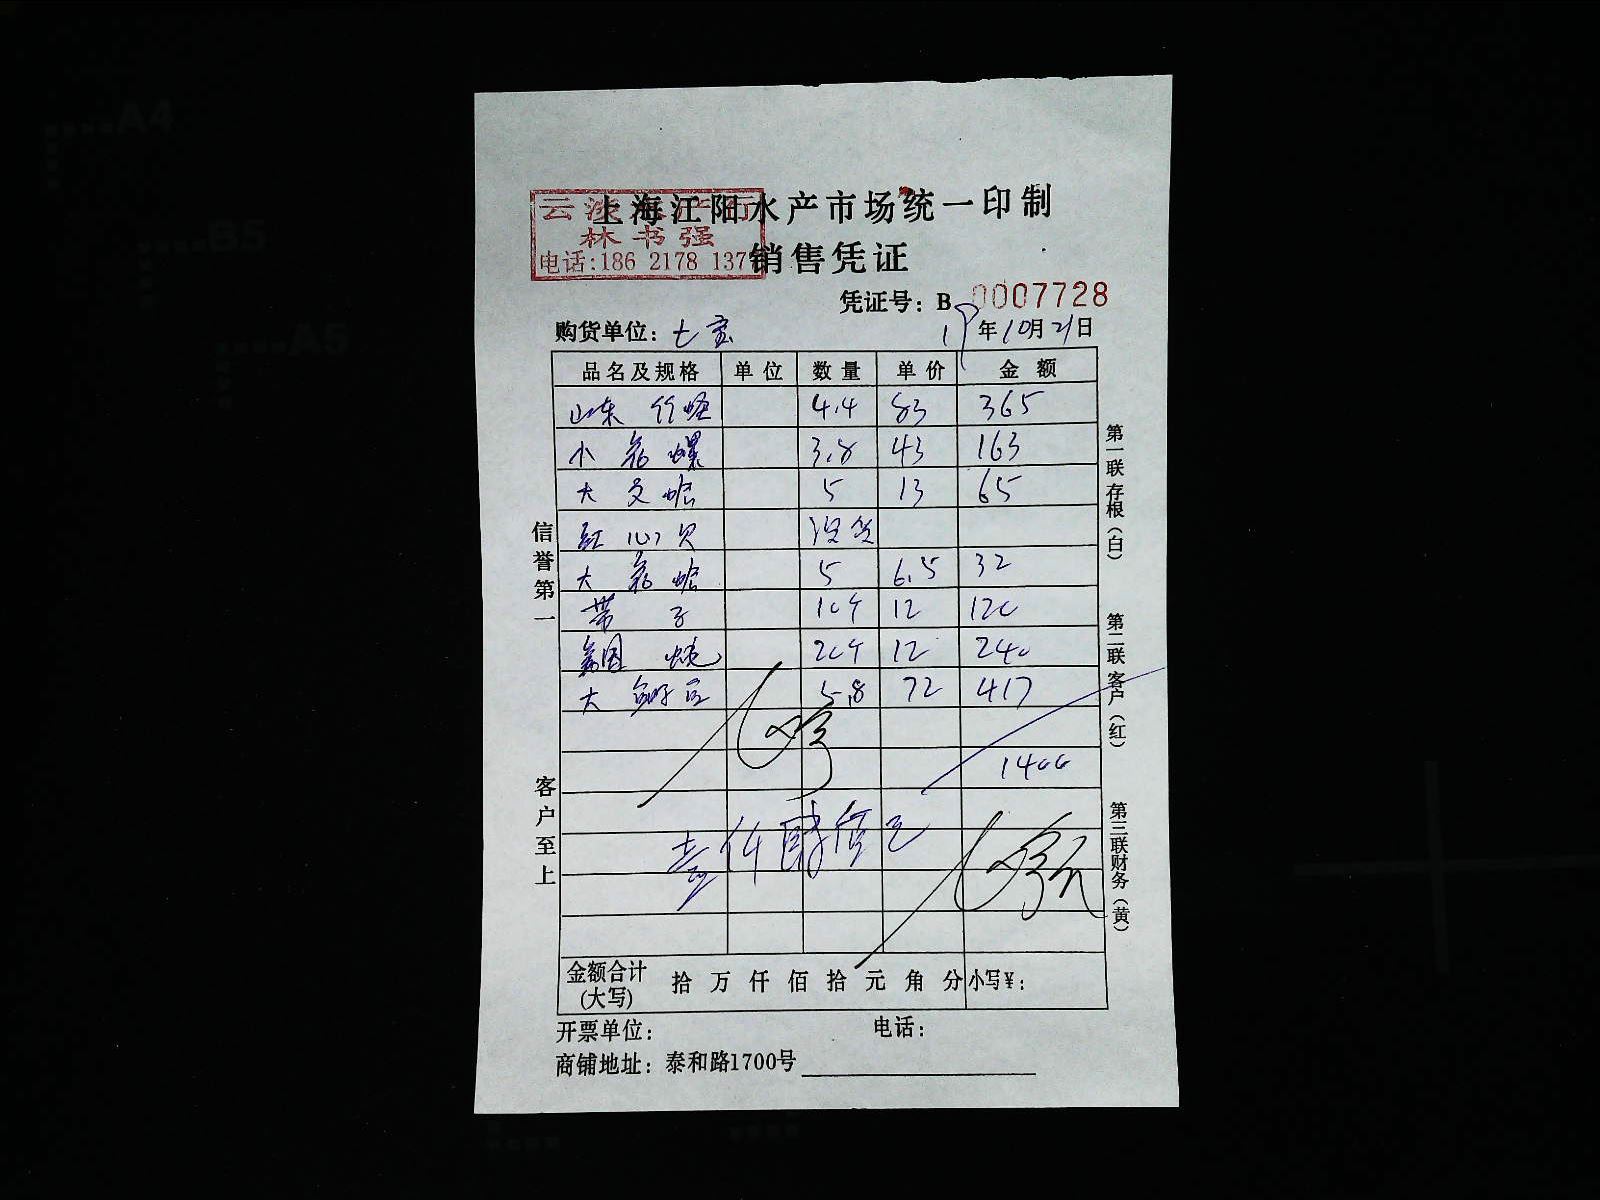 上海江阳水产市场统一印制
林书强
电话:186 2178 137
销售凭证
凭证号: B 0007728
购货单位: 七宝 19年10月21日
品名及规格 单位 数量 单价 金额
山东 竹蛏 4.4 83 365
小 花螺 3.8 43 163
大 文蛤 5 13 65
红 心 贝 没货
大 花蛤 5 6.5 32
带 子 10个 12 120
20个 12 240
大 5.8 72 417
1400
壹仟肆佰元
金额合计(大写) 拾 万 仟 佰 拾 元 角 分 小写¥:
开票单位: 电话:
商铺地址: 泰和路1700号
信誉第一
客户至上
第一联存根(白)
第二联客户(红)
第三联财务(黄)